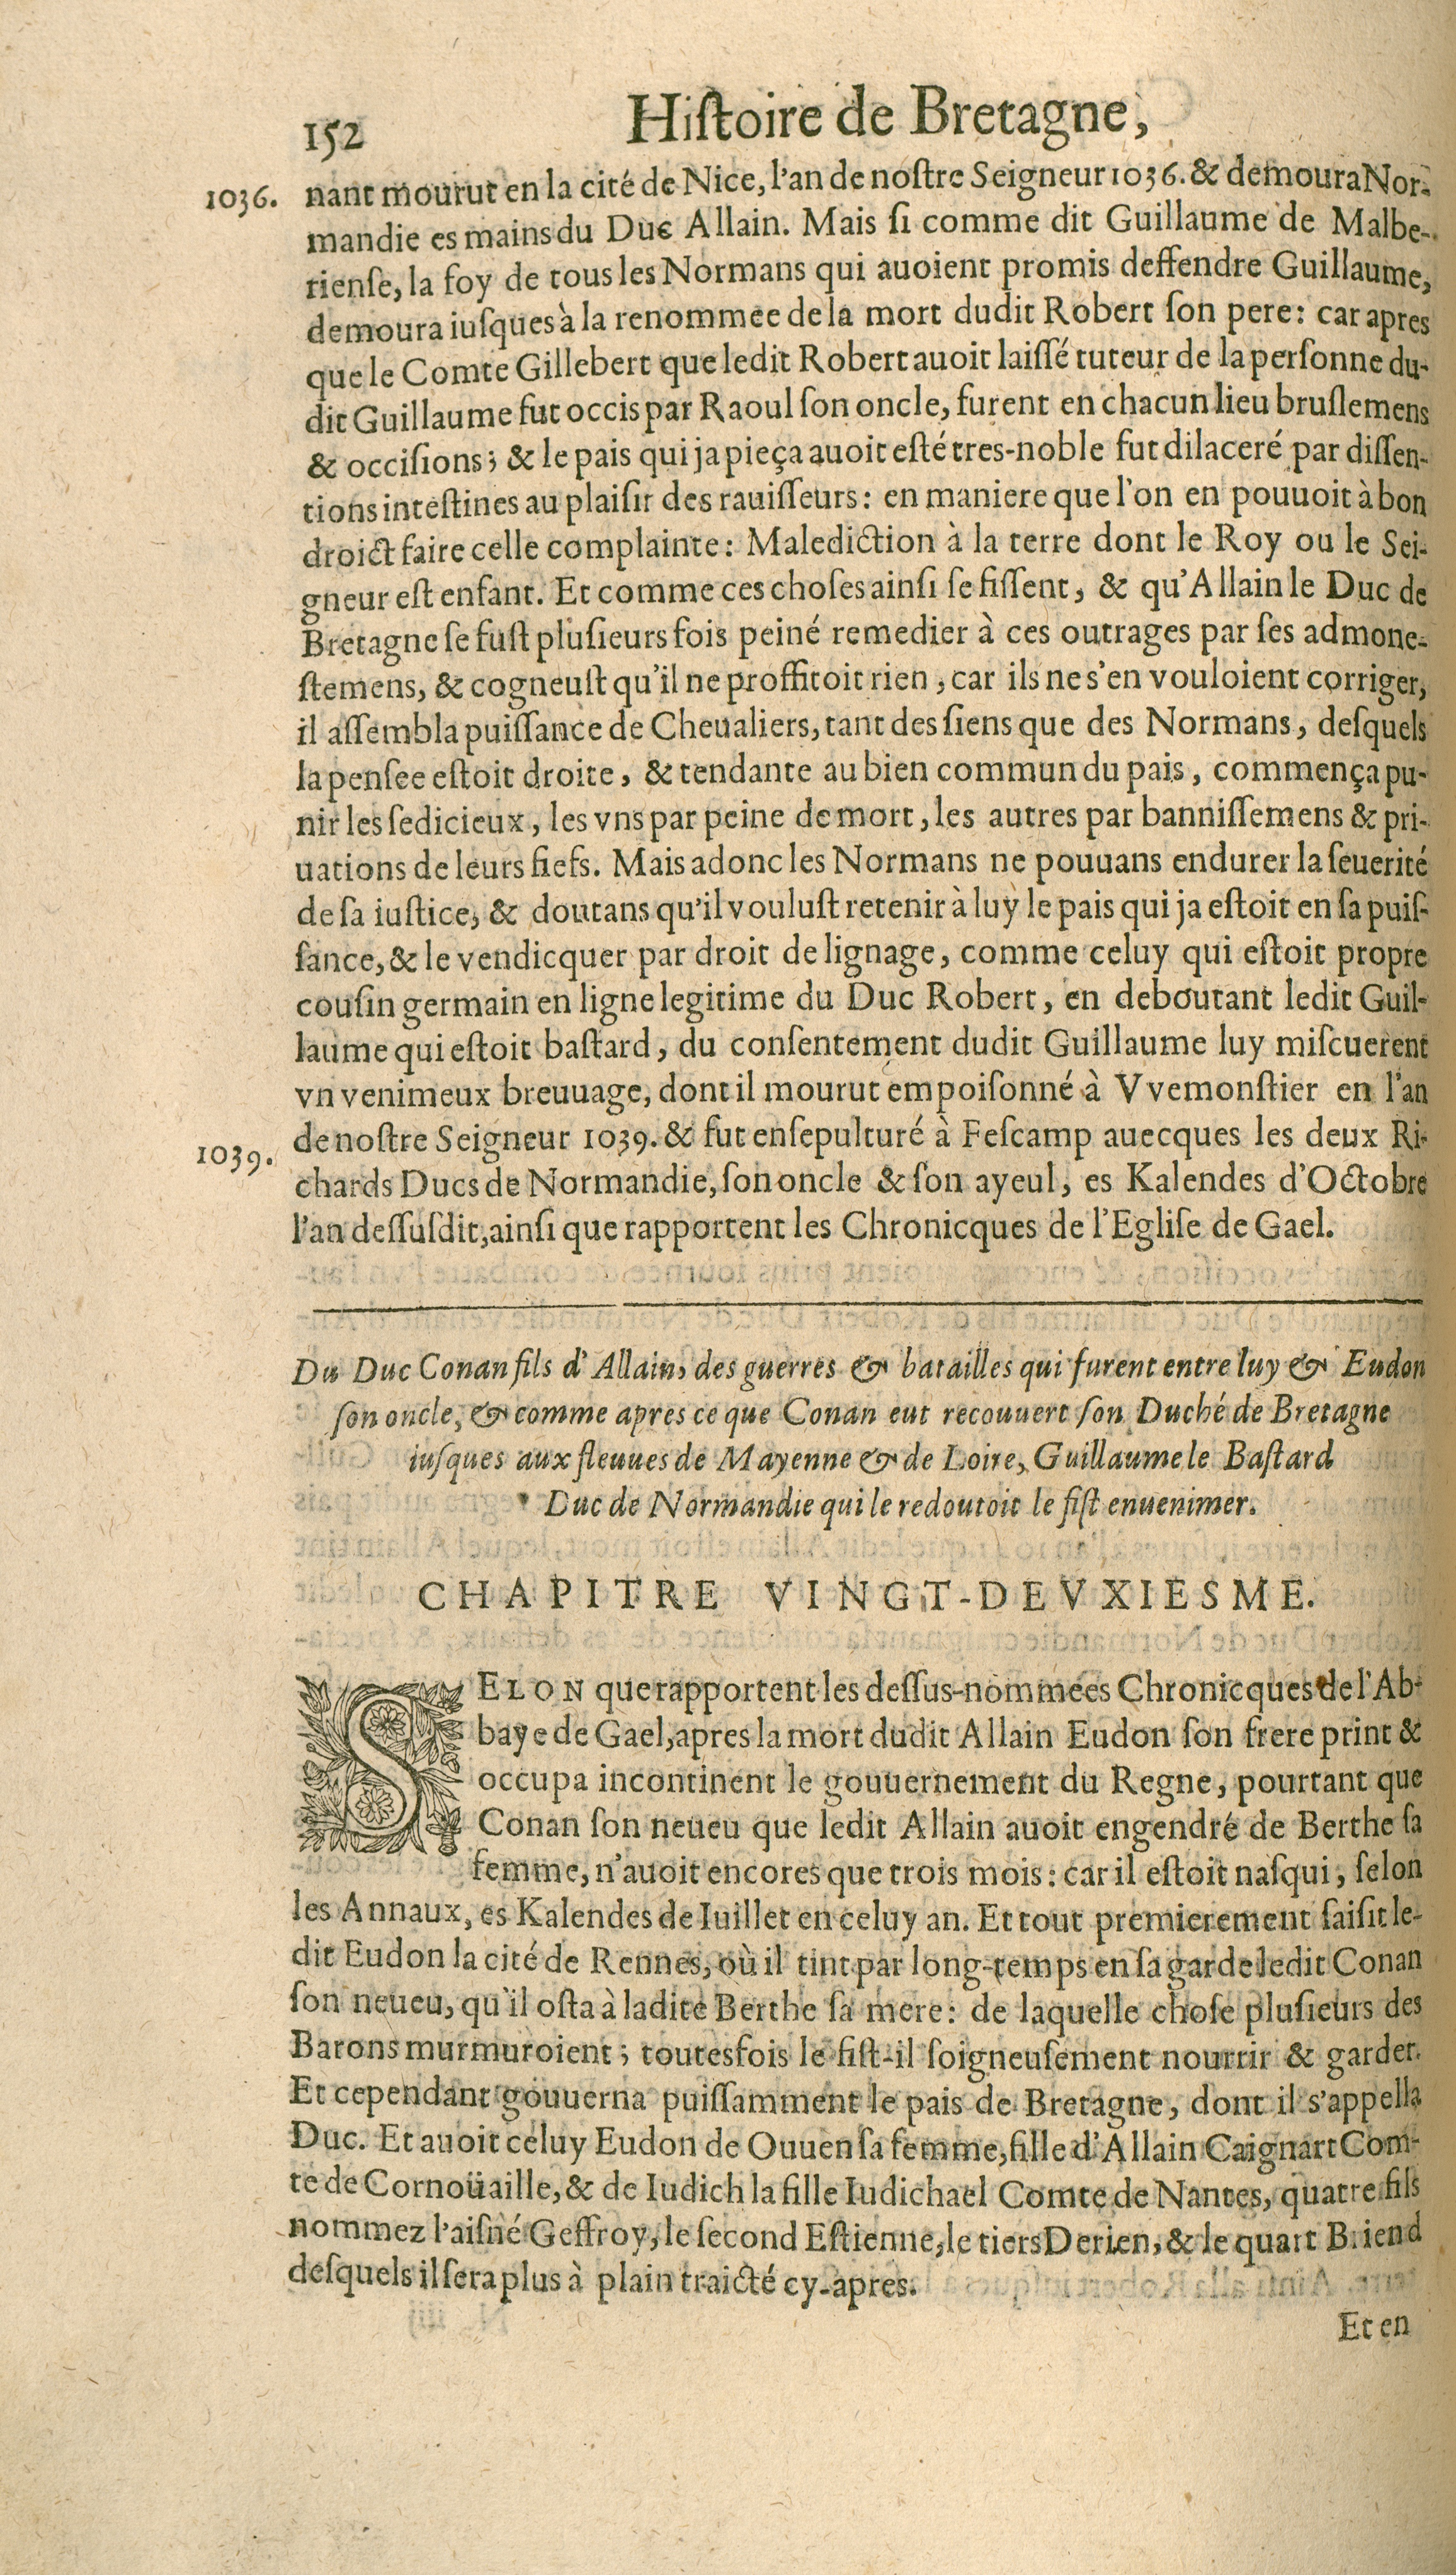 152 Hiſtoire de Bretagne,
1036. nant mourut en la cité de Nice, l'an de noſtre Seigneur 1036. & demoura Nor-
mandie es mains du Duc Allain. Mais ſi comme dit Guillaume de Malbe-
rienſe, la foy de tous les Normans qui auoient promis deffendre Guillaume,
demoura iuſques à la renommee de la mort dudit Robert ſon pere: car apres
que le Comte Gillebert que ledit Robert auoit laiſſé tuteur de la perſonne du-
dit Guillaume fut occis par Raoul ſon oncle, furent en chacun lieu bruſlemens
& occiſions; & le pais qui ja pieça auoit eſté tres-noble fut dilaceré par diſſen-
tions inteſtines au plaiſir des rauiſſeurs: en maniere que l'on en pouuoit à bon
droict faire celle complainte: Malediction à la terre dont le Roy ou le Sei-
gneur eſt enfant. Et comme ces choſes ainſi ſe fiſſent, & qu'Allain le Duc de
Bretagne ſe fuſt pluſieurs fois peiné remedier à ces outrages par ſes admone-
ſtemens, & cogneuſt qu'il ne proffitoit rien, car ils ne s'en vouloient corriger,
il aſſembla puiſſance de Cheualiers, tant des ſiens que des Normans, deſquels
la penſee eſtoit droite, & tendante au bien commun du pais, commença pu-
nir les ſedicieux, les vns par peine de mort, les autres par banniſſemens & pri-
uations de leurs fiefs. Mais adonc les Normans ne pouuans endurer la ſeuerité
de ſa iuſtice, & doutans qu'il vouluſt retenir à luy le pais qui ja eſtoit en ſa puiſ-
ſance, & le vendicquer par droit de lignage, comme celuy qui eſtoit propre
couſin germain en ligne legitime du Duc Robert, en deboutant ledit Guil-
laume qui eſtoit baſtard, du conſentement dudit Guillaume luy miſcuerent
vn venimeux breuuage, dont il mourut empoiſonné à Vvemonſtier en l'an
1039. de noſtre Seigneur 1039. & fut enſepulturé à Feſcamp auecques les deux Ri-
chards Ducs de Normandie, ſon oncle & ſon ayeul, es Kalendes d'Octobre
l'an deſſuſdit, ainſi que rapportent les Chronicques de l'Egliſe de Gael.
Du Duc Conan fils d'Allain, des guerres & batailles qui furent entre luy & Eudon
ſon oncle, & comme apres ce que Conan eut recouuert ſon Duché de Bretagne
iuſques aux fleuues de Mayenne & de Loire, Guillaume le Baſtard
Duc de Normandie qui le redoutoit le fiſt enuenimer.
CHAPITRE VINGT-DEVXIESME.
SELON que rapportent les deſſus-nommées Chronicques de l'Ab-
baye de Gael, apres la mort dudit Allain Eudon ſon frere print &
occupa incontinent le gouuernement du Regne, pourtant que
Conan ſon neueu que ledit Allain auoit engendré de Berthe ſa
femme, n'auoit encores que trois mois: car il eſtoit naſqui, ſelon
les Annaux, es Kalendes de Iuillet en celuy an. Et tout premierement ſaiſit le-
dit Eudon la cité de Rennes, où il tint par long-temps en ſa garde ledit Conan
ſon neueu, qu'il oſta à ladite Berthe ſa mere: de laquelle choſe pluſieurs des
Barons murmuroient; toutesfois le fiſt-il ſoigneuſement nourrir & garder.
Et cependant gouuerna puiſſamment le pais de Bretagne, dont il s'appella
Duc. Et auoit celuy Eudon de Ouuen ſa femme, fille d'Allain Caignart Com-
te de Cornoüaille, & de Iudich la fille Iudichael Comte de Nantes, quatre fils
nommez l'aiſné Geffroy, le ſecond Eſtienne, le tiers Derien, & le quart Briend
deſquels il ſera plus à plain traicté cy-apres.
Et en